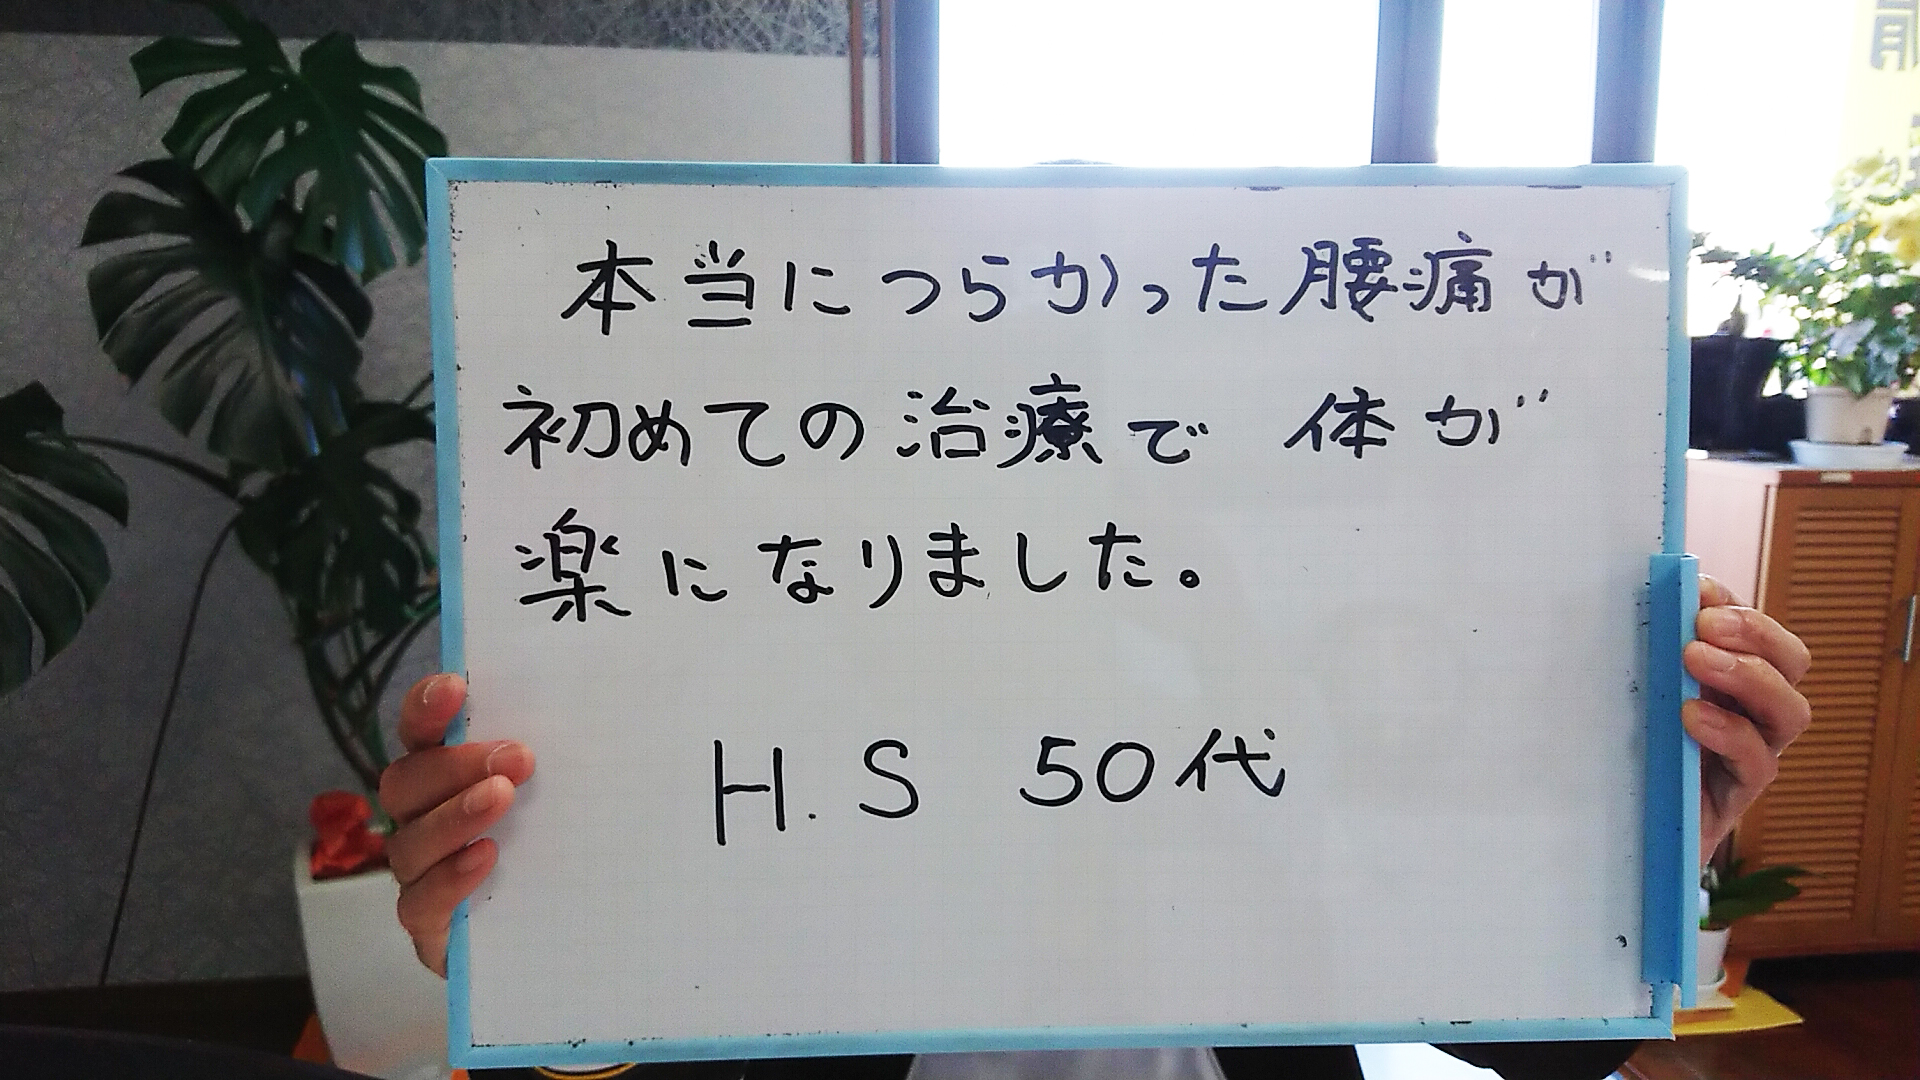 本当につらかった腰痛が
初めての治療で 体が
楽になりました。
H.S 50代